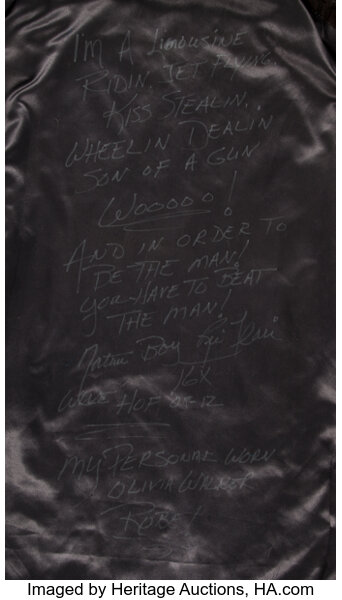 I'M A LIMOUSINE
RIDIN, JET FLYING,
KISS STEALIN,
WHEELIN DEALIN
SON OF A GUN
WOOOOO!
AND IN ORDER TO
BE THE MAN!
YOU HAVE TO BEAT
THE MAN!
Nature Boy Ric Flair
16X
WWE HOF 08-12
MY PERSONAL WORN
OLIVIA WALKER
ROBE!
Imaged by Heritage Auctions, HA.com